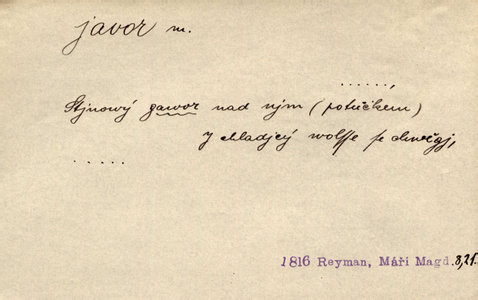 javor m.
. . . . . . ,
Stjnowý gawor nad njm (potůčkem)
y chladjcý wolsse se chwěgj,
. . . . .
1816 Reyman, Máří Magd. 8,21.